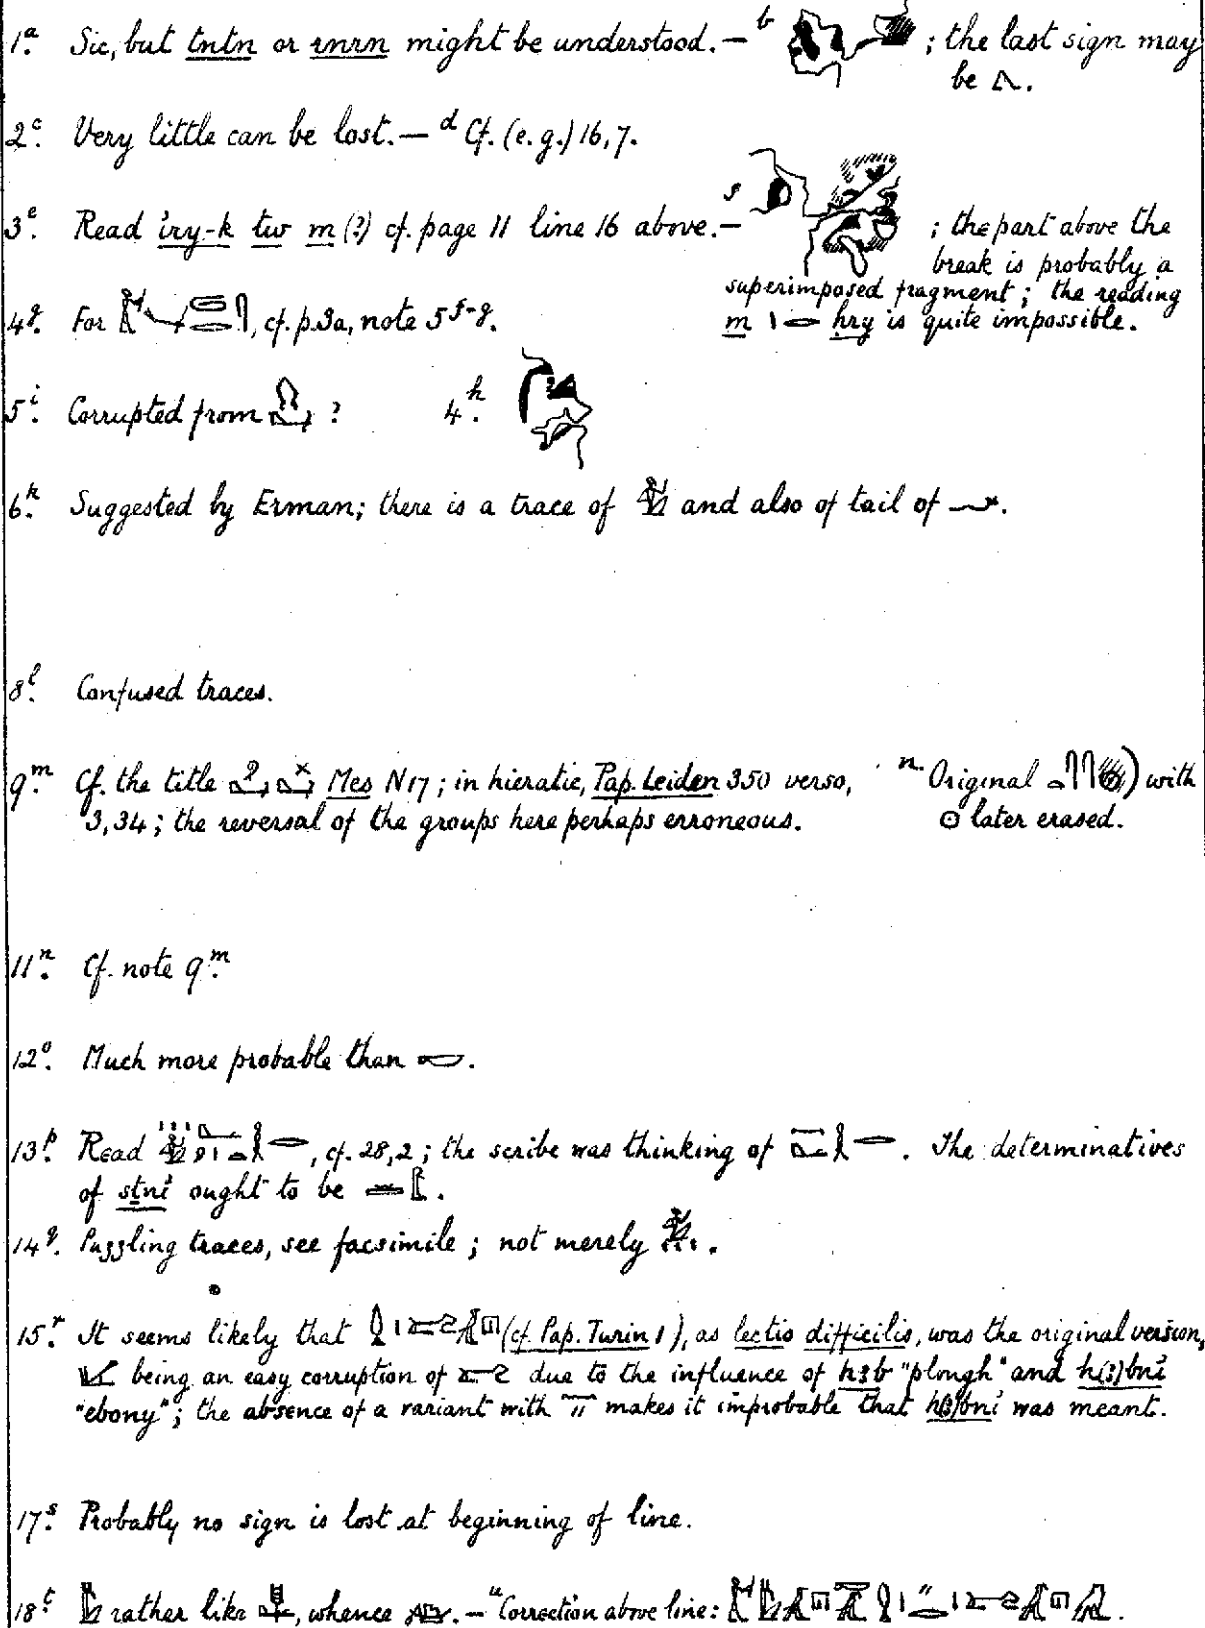 1ᵃ. Sic, but tntn or rnrn might be understood. — ᵇ ; the last sign may
be 𓈎.
2ᶜ. Very little can be lost. — ᵈ Cf. (e.g.) 16,7.
3ᵉ. Read iry-k tw m (?) cf. page 11 line 16 above. — ᶠ ; the part above the
break is probably a
superimposed fragment; the reading
m hry is quite impossible.
4ᵍ. For , cf. p. 3a, note 5 ᶠ⁻ᵍ.
5ⁱ. Corrupted from ? 4ʰ.
6ᵏ. Suggested by Erman; there is a trace of and also of tail of .
8ˡ. Confused traces.
9ᵐ. Cf. the title Mes N17; in hieratic, Pap. Leiden 350 verso,
3,34; the reversal of the groups here perhaps erroneous.
ⁿ. Original with
☉ later erased.
11ⁿ. Cf. note 9ᵐ.
12ᵒ. Much more probable than .
13ᵖ. Read , cf. 28,2; the scribe was thinking of . The determinatives
of sṯni ought to be .
14ᑫ. Puzzling traces, see facsimile; not merely .
15ʳ. It seems likely that (cf. Pap. Turin 1), as lectio difficilis, was the original version,
being an easy corruption of due to the influence of hꜣb "plough" and h(ꜣ)bni
"ebony"; the absence of a variant with makes it improbable that h(ꜣ)bni was meant.
17ˢ. Probably no sign is lost at beginning of line.
18ᵗ. rather like , whence . — ᵘ Correction above line: .